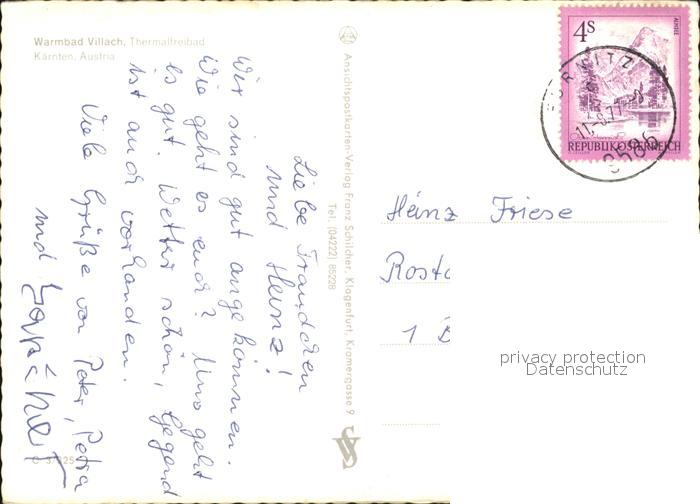 Warmbad Villach, Thermalfreibad
Kärnten, Austria
Liebe Fraudchen
und Heinz!
Wir sind gut angekommen.
Wie geht es euch? Uns geht
es gut. Wetter schön, Gegend
ist auch vorhanden.
Viele Grüße von Peter, Petra
und
Ansichtspostkarten-Verlag Franz Schilcher, Klagenfurt, Kramergasse 9
Tel. (04222) 85228
4S
ALMSEE
REPUBLIK ÖSTERREICH
FÜRNITZ
9586
Heinz Friese
Rosto
1 B
privacy protection
Datenschutz